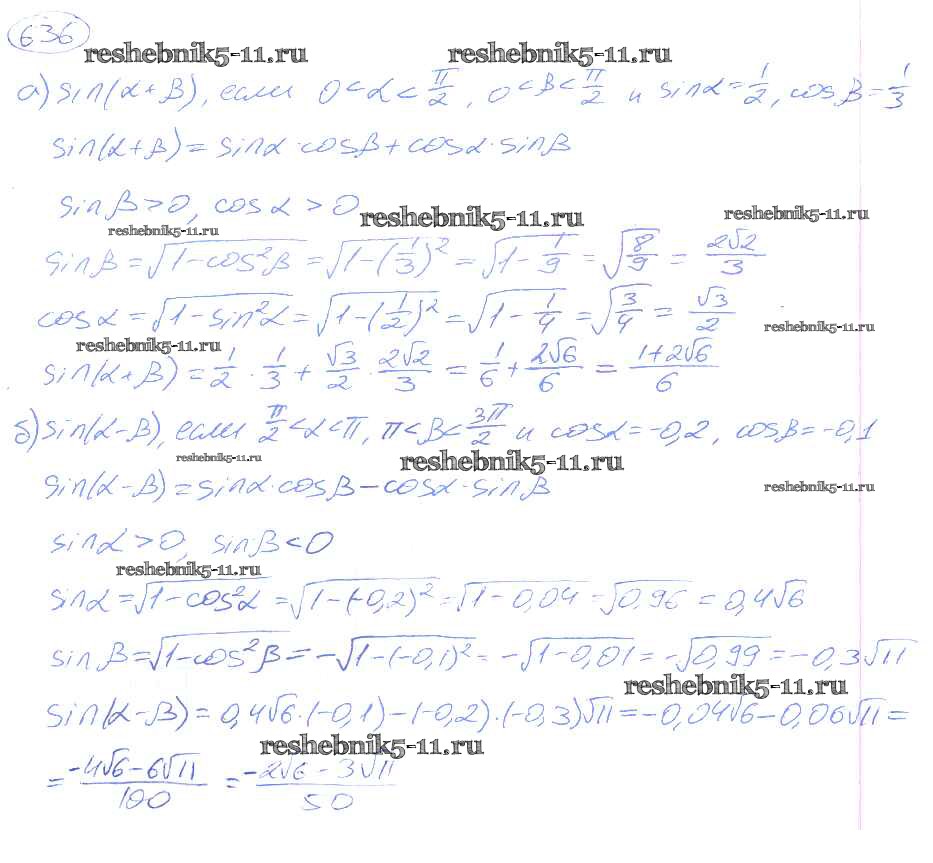 636
reshebnik5-11.ru reshebnik5-11.ru
а) sin(α+β), если 0<α<π/2, 0<β<π/2 и sinα=1/2, cosβ=1/3
sin(α+β)=sinα·cosβ+cosα·sinβ
sinβ>0, cosα>0
reshebnik5-11.ru reshebnik5-11.ru
reshebnik5-11.ru
sinβ=√(1-cos²β)=√(1-(1/3)²)=√(1-1/9)=√(8/9)=2√2/3
cosα=√(1-sin²α)=√(1-(1/2)²)=√(1-1/4)=√(3/4)=√3/2
reshebnik5-11.ru
reshebnik5-11.ru
sin(α+β)=1/2·1/3+√3/2·2√2/3=1/6+2√6/6=(1+2√6)/6
б) sin(α-β), если π/2<α<π, π<β<3π/2 и cosα=-0,2, cosβ=-0,1
reshebnik5-11.ru reshebnik5-11.ru
sin(α-β)=sinα·cosβ-cosα·sinβ
reshebnik5-11.ru
sinα>0, sinβ<0
reshebnik5-11.ru
sinα=√(1-cos²α)=√(1-(-0,2)²)=√(1-0,04)=√0,96=0,4√6
sinβ=√(1-cos²β)=-√(1-(-0,1)²)=-√(1-0,01)=-√0,99=-0,3√11
reshebnik5-11.ru
sin(α-β)=0,4√6·(-0,1)-(-0,2)·(-0,3)√11=-0,04√6-0,06√11=
reshebnik5-11.ru
=(-4√6-6√11)/100=(-2√6-3√11)/50